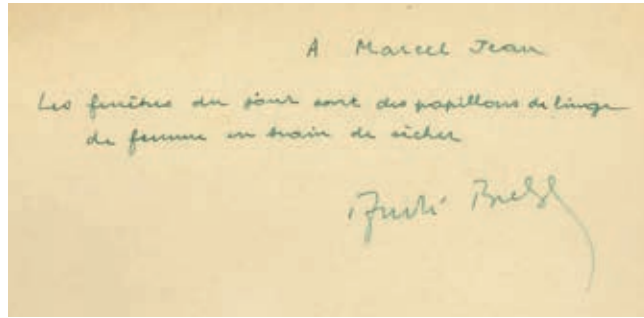 A Marcel Jean
Les fenêtres du jour sont des papillons de linge
de femme en train de sécher
André Breton